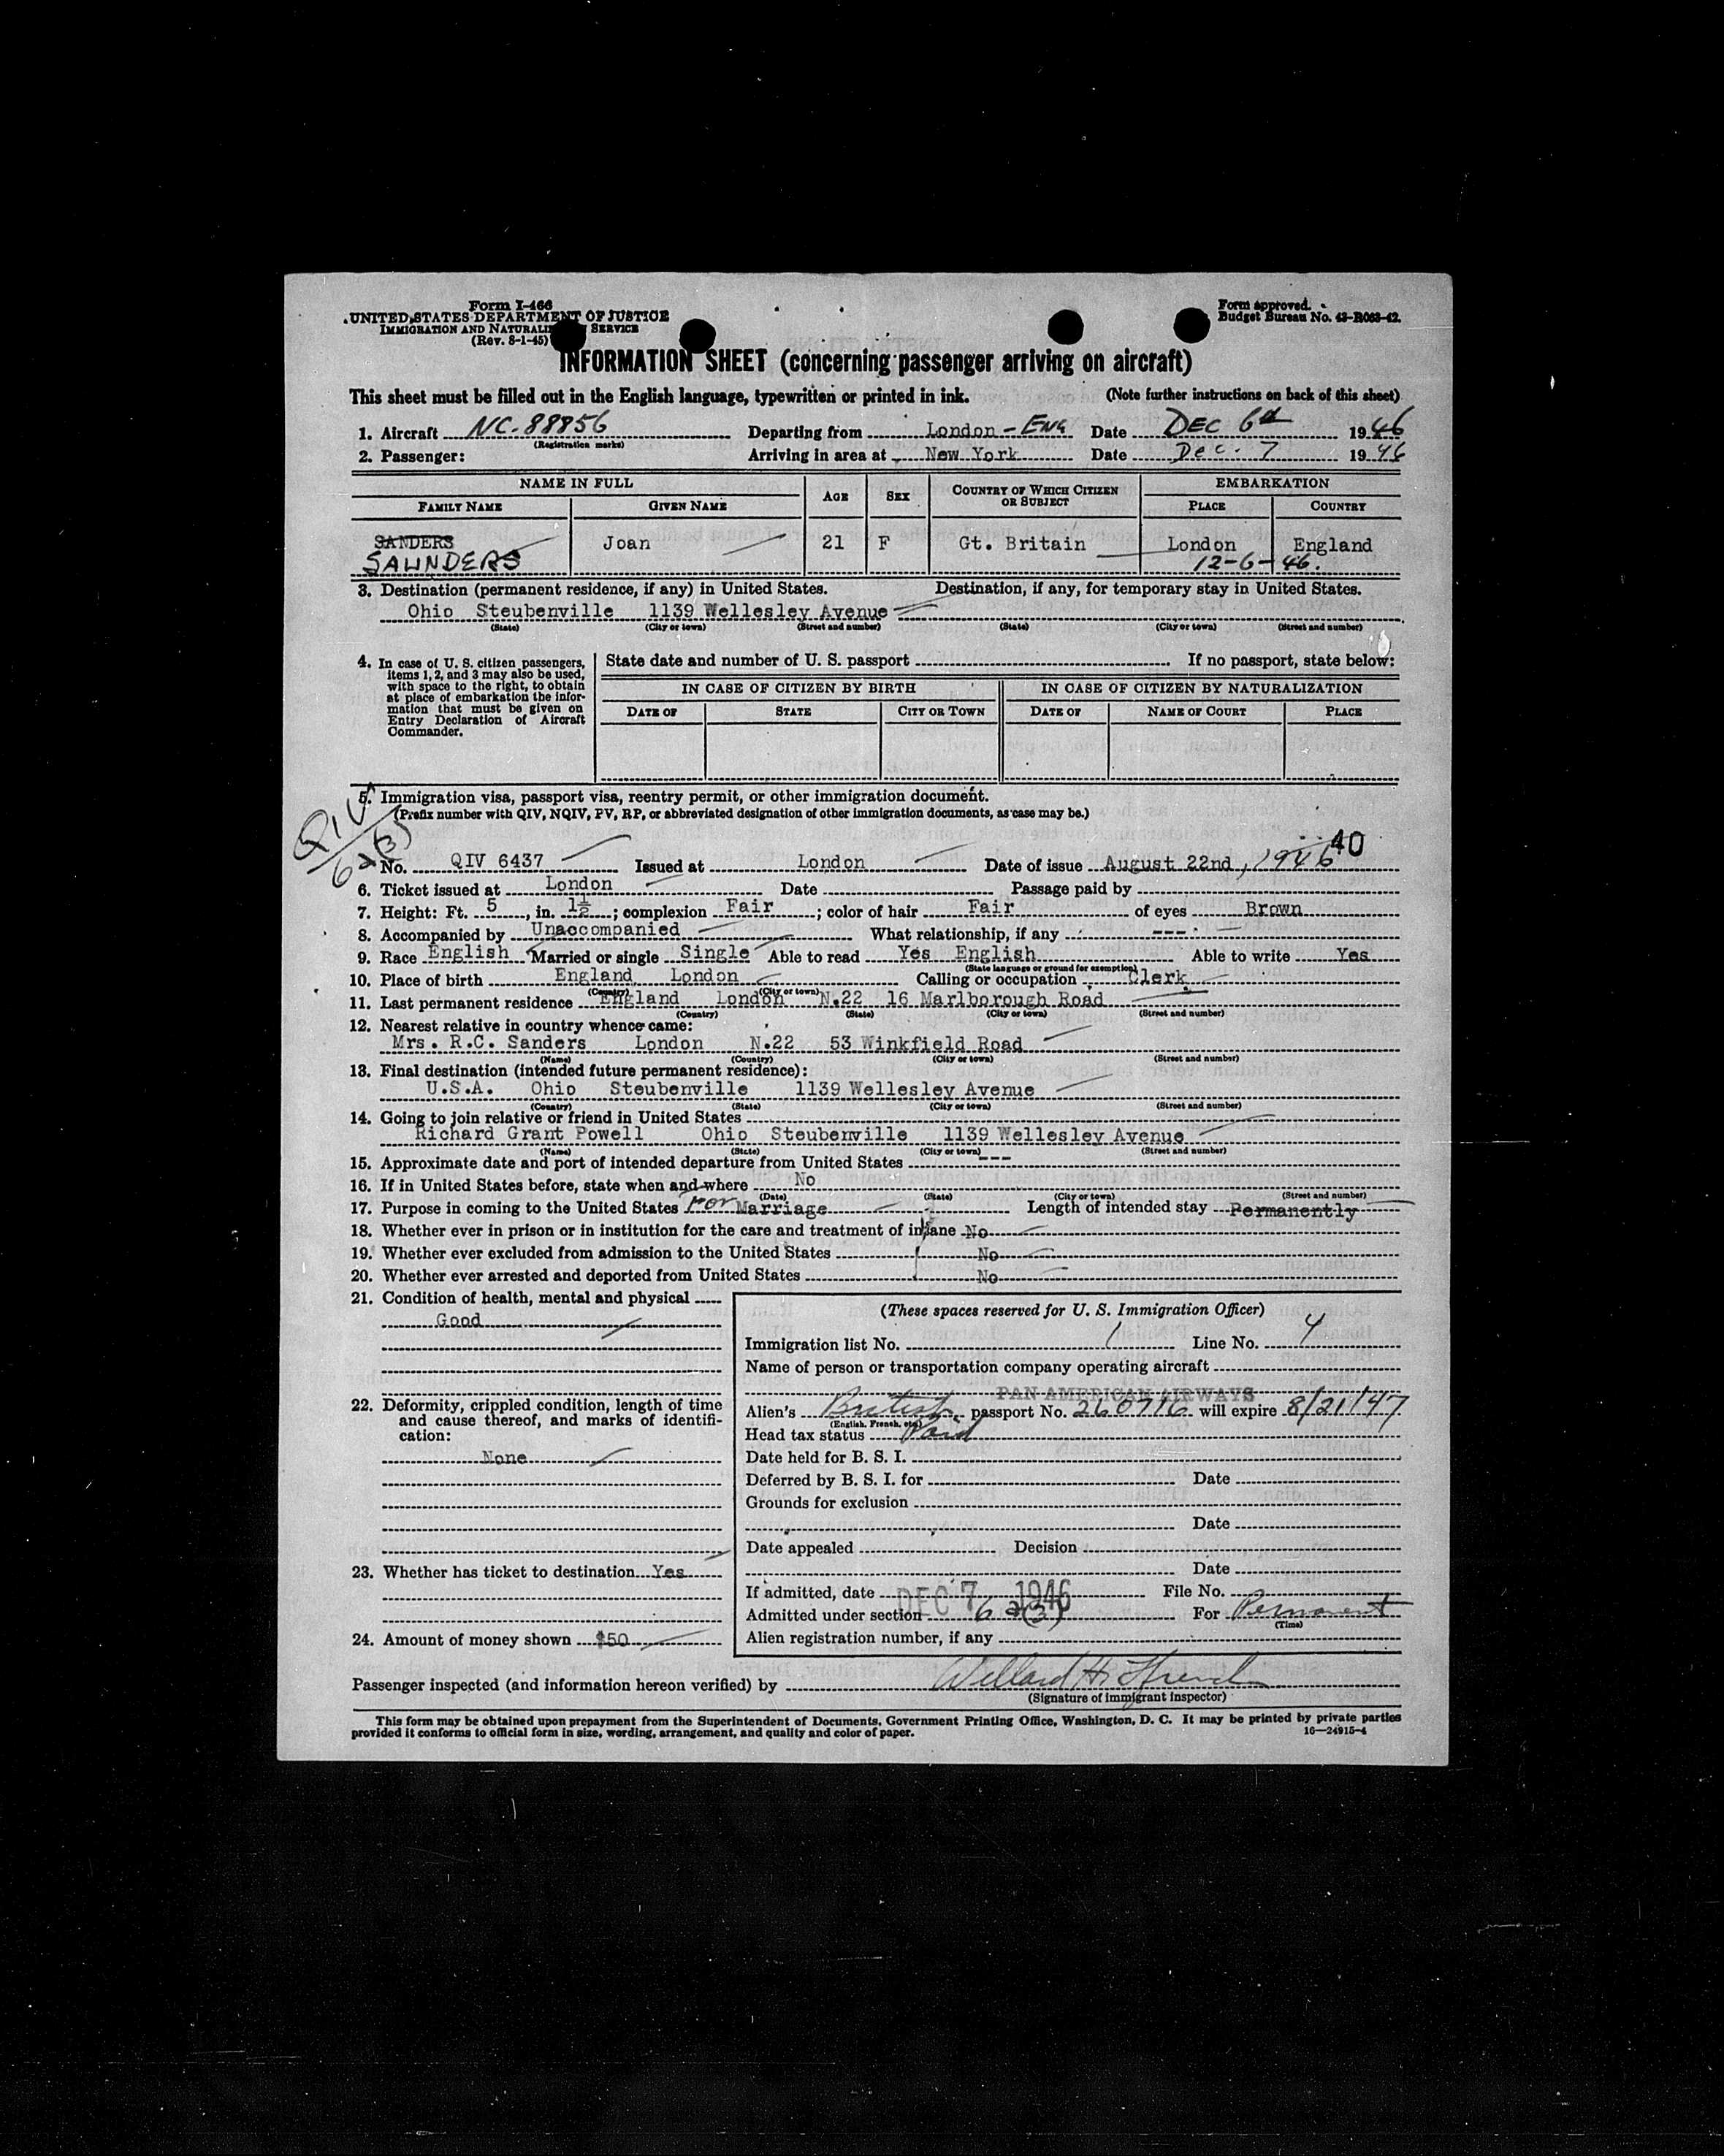 Form I-466
UNITED STATES DEPARTMENT OF JUSTICE
IMMIGRATION AND NATURALI SERVICE
(Rev. 8-1-45)
Form approved.
Budget Bureau No. 43-R063-42.
INFORMATION SHEET (concerning passenger arriving on aircraft)
This sheet must be filled out in the English language, typewritten or printed in ink. (Note further instructions on back of this sheet)
1. Aircraft NC-88856 Departing from London - ENG Date DEC 6th 1946
(Registration marks)
2. Passenger: Arriving in area at New York Date Dec. 7 1946
NAME IN FULL AGE SEX COUNTRY OF WHICH CITIZEN OR SUBJECT EMBARKATION
FAMILY NAME GIVEN NAME PLACE COUNTRY
SANDERS Joan 21 F Gt. Britain London England
SAUNDERS 12-6-46.
3. Destination (permanent residence, if any) in United States. Destination, if any, for temporary stay in United States.
Ohio Steubenville 1139 Wellesley Avenue
(State) (City or town) (Street and number) (State) (City or town) (Street and number)
4. In case of U. S. citizen passengers, items 1, 2, and 3 may also be used, with space to the right, to obtain at place of embarkation the information that must be given on Entry Declaration of Aircraft Commander.
State date and number of U. S. passport If no passport, state below:
IN CASE OF CITIZEN BY BIRTH IN CASE OF CITIZEN BY NATURALIZATION
DATE OF STATE CITY OR TOWN DATE OF NAME OF COURT PLACE
QIV
5. Immigration visa, passport visa, reentry permit, or other immigration document.
(Prefix number with QIV, NQIV, PV, RP, or abbreviated designation of other immigration documents, as case may be.)
40
No. QIV 6437 Issued at London Date of issue August 22nd, 1946
6. Ticket issued at London Date Passage paid by
7. Height: Ft. 5, in. 1½; complexion Fair; color of hair Fair of eyes Brown
8. Accompanied by Unaccompanied What relationship, if any ---
9. Race English Married or single Single Able to read Yes English Able to write Yes
(State language or ground for exemption)
10. Place of birth England London Calling or occupation Clerk
(Country) (City or town)
11. Last permanent residence England London N.22 16 Marlborough Road
(Country) (State) (City or town) (Street and number)
12. Nearest relative in country whence came:
Mrs. R.C. Sanders London N.22 53 Winkfield Road
(Name) (Country) (City or town) (Street and number)
13. Final destination (intended future permanent residence):
U.S.A. Ohio Steubenville 1139 Wellesley Avenue
(Country) (State) (City or town) (Street and number)
14. Going to join relative or friend in United States
Richard Grant Powell Ohio Steubenville 1139 Wellesley Avenue
(Name) (State) (City or town) (Street and number)
15. Approximate date and port of intended departure from United States ---
16. If in United States before, state when and where No
(Date) (State) (City or town) (Street and number)
17. Purpose in coming to the United States For Marriage Length of intended stay Permanently
18. Whether ever in prison or in institution for the care and treatment of insane No
19. Whether ever excluded from admission to the United States No
20. Whether ever arrested and deported from United States No
21. Condition of health, mental and physical
Good
22. Deformity, crippled condition, length of time and cause thereof, and marks of identification:
None
23. Whether has ticket to destination Yes
24. Amount of money shown $50
(These spaces reserved for U. S. Immigration Officer)
Immigration list No. 1 Line No. 4
Name of person or transportation company operating aircraft
PAN AMERICAN AIRWAYS
Alien's British passport No. 260716 will expire 8/21/47
(English, French, etc.)
Head tax status Paid
Date held for B. S. I.
Deferred by B. S. I. for Date
Grounds for exclusion
Date
Date appealed Decision
Date
If admitted, date DEC 7 1946 File No.
Admitted under section 6a(3) For Permanent
(Time)
Alien registration number, if any
Passenger inspected (and information hereon verified) by Willard H.
(Signature of immigrant inspector)
This form may be obtained upon prepayment from the Superintendent of Documents, Government Printing Office, Washington, D. C. It may be printed by private parties
provided it conforms to official form in size, wording, arrangement, and quality and color of paper. 16—24915-4